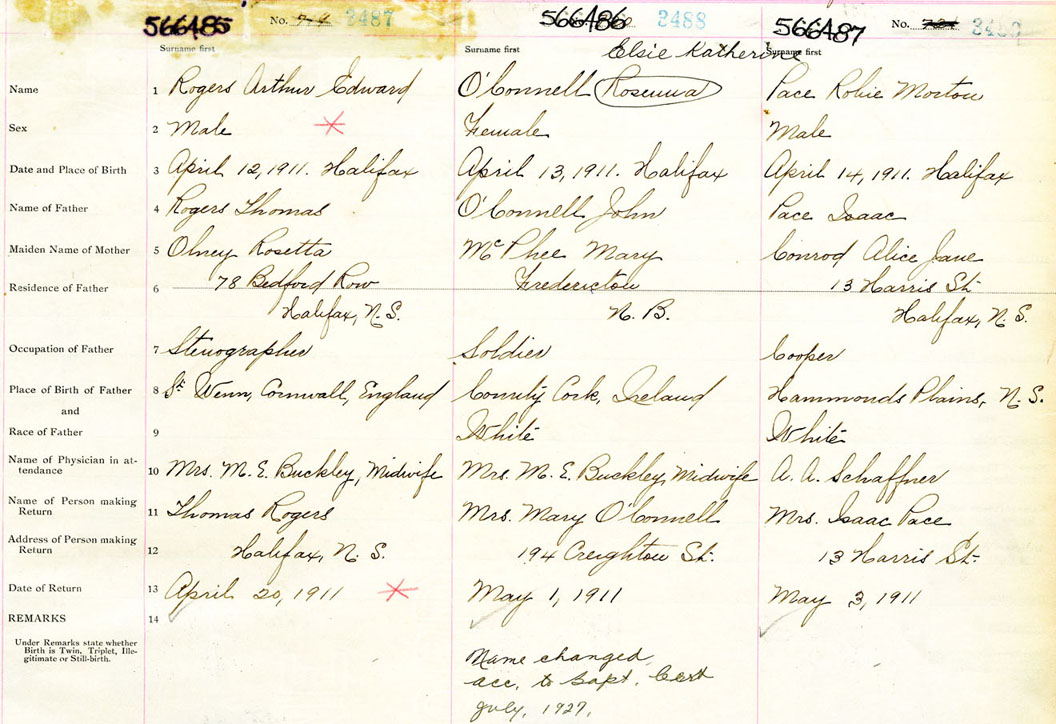 566485 No. 3487 566486 3488 566487 No.
Surname first Surname first Elsie Katherine Surname first
Name 1 Rogers Arthur Edward O'Connell Rosenna Pace Robie Morton
Sex 2 Male Female Male
Date and Place of Birth 3 April 12, 1911. Halifax April 13, 1911. Halifax April 14, 1911. Halifax
Name of Father 4 Rogers Thomas O'Connell John Pace Isaac
Maiden Name of Mother 5 Olney Rosetta McPhee Mary Conrod Alice Jane
Residence of Father 6 78 Bedford Row Fredericton 13 Harris St.
Halifax, N.S. N.B. Halifax, N.S.
Occupation of Father 7 Stenographer Soldier Cooper
Place of Birth of Father 8 St. Wenn, Cornwall, England County Cork, Ireland Hammonds Plains, N.S.
and
Race of Father 9 White White
Name of Physician in at-
tendance 10 Mrs. M. E. Buckley, Midwife Mrs. M. E. Buckley, Midwife A. A. Schaffner
Name of Person making
Return 11 Thomas Rogers Mrs. Mary O'Connell Mrs. Isaac Pace
Address of Person making
Return 12 Halifax, N.S. 194 Creighton St. 13 Harris St.
Date of Return 13 April 20, 1911 May 1, 1911 May 3, 1911
REMARKS 14
Under Remarks state whether
Birth is Twin, Triplet, Ille-
gitimate or Still-birth.
Name changed
acc. to Bapt. Cert
July, 1927.